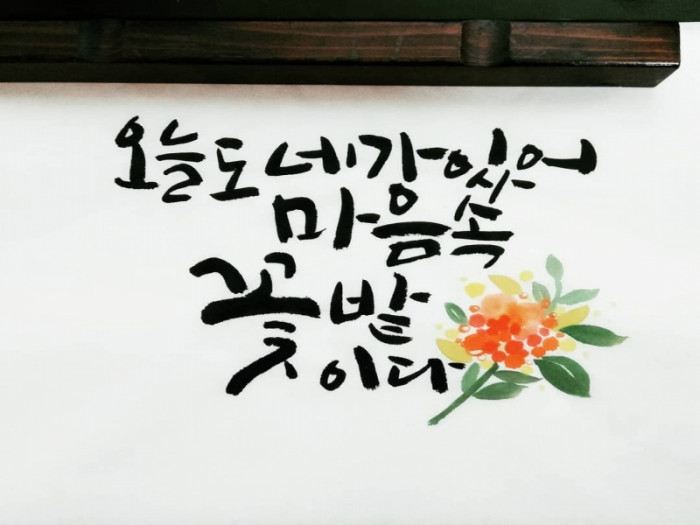 오늘도 네가 있어
마음속
꽃밭
이다